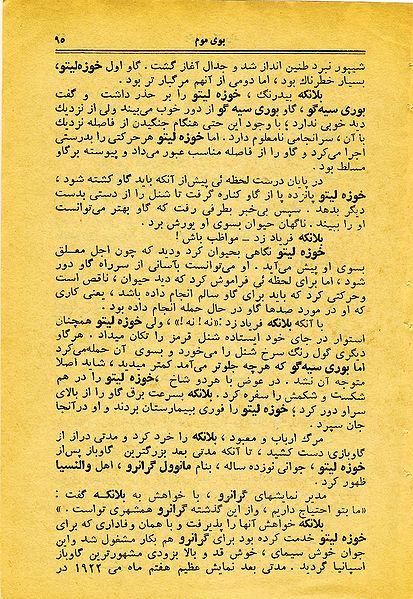 بوی موم ۹۵
شیپور نبرد طنین انداز شد و جدال آغاز گشت . گاو اول خوزه‌لیتو،
بسیار خطرناك بود ، اما دومی از آنهم مرگبار تر بود .
بلانکه بیدرنگ ، خوزه لیتو را بر حذر داشت و گفت
بوری سیه‌گو ، گاو بوری سیه گو از دور خوب می‌بیند ولی از نزدیك
دید خوبی ندارد ؛ با وجود این حتی هنگام جنگیدن از فاصله نزدیك
با آن ، سرانجامی نامعلوم دارد . اما خوزه لیتو هرحرکتی را بدرستی
اجرا می‌کرد و گاو را از فاصله مناسب عبور می‌داد و پیوسته برگاو
مسلط بود .
در پایان درست لحظه ئی پیش‌از آنکه باید گاو کشته شود ،
خوزه لیتو پانزده پا از گاو کناره گرفت تا شنل را از دستی بدست
دیگر بدهد . سپس بی‌خبر بطرفی رفت که گاو بهتر می‌توانست
او را ببیند . ناگهان حیوان بسوی او یورش برد .
بلانکه فریاد زد ـ مواظب باش !
خوزه لیتو نگاهی بحیوان کرد ودید که چون اجل معلق
بسوی او پیش می‌آید . او می‌توانست بآسانی از سرراه گاو دور
شود ، اما برای لحظه ئی فراموش کرد که دید حیوان ، ناقص است
وحرکتی کرد که باید برای گاو سالم انجام داده باشد ، یعنی کاری
که او در مورد صدها گاو در حال حمله انجام داده بود .
با آنکه بلانکه فریاد زد: «نه ! نه !» ، ولی خوزه لیتو همچنان
استوار در جای خود ایستاده شنل قرمز را تکان میداد . هرگاو
دیگری گول رنگ سرخ شنل را می‌خورد و بسوی آن حمله‌می‌کرد
اما بوری سیه‌گو که هرچه جلوتر می‌آمد کمتر میدید ، شاید اصلا
متوجه آن نشد . در عوض با هردو شاخ ، خوزه لیتو را در هم
شکست و شکمش را سفره کرد . بلانکه بسرعت برق گاو را از بالای
سراو دور کرد ؛ خوزه لیتو را فوری بیمارستان بردند و او درآنجا
جان سپرد .
مرگ ارباب و معبود ، بلانکه را خرد کرد و مدتی دراز از
گاوبازی دست کشید ، تا آنکه مدتی بعد بزرگترین گاوباز پس‌از
خوزه لیتو ، جوانی نوزده ساله ، بنام مانوول گرانرو ، اهل والنسیا
ظهور کرد .
مدیر نمایشهای گرانرو ، با خواهش به بلانکه گفت :
«ما بتو احتیاج داریم ، واز این گذشته گرانرو همشهری تواست . »
بلانکه خواهش آنها را پذیرفت و با همان وفاداری که برای
خوزه لیتو خدمت کرده بود برای گرانرو هم بکار مشغول شد واین
جوان خوش سیمای ، خوش قد و بالا بزودی مشهورترین گاوباز
اسپانیا گردید . مدتی بعد نمایش عظیم هفتم ماه می ۱۹۲۲ در